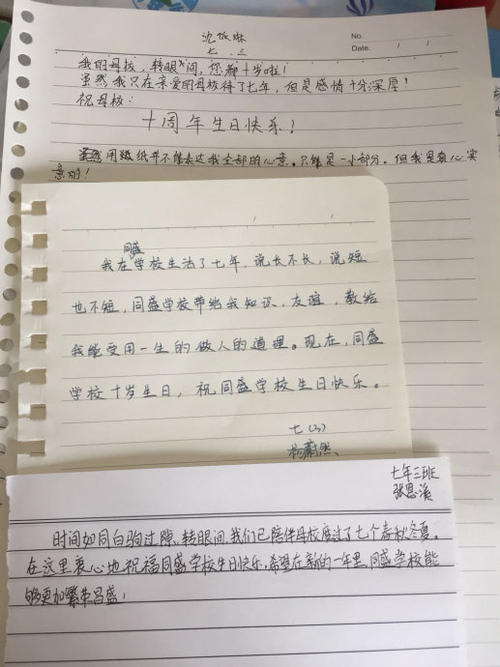 沈依琳
No.
七.三
Date.
我的母校，转眼间，您都十岁啦！
虽然我只在亲爱的母校待了七年，但是感情十分深厚！
祝母校：
十周年生日快乐！
虽然用纸并不能表达我全部的心意。只能是一小部分，但我是真心实
意的！
同盛
我在学校生活了七年，说长不长，说短
也不短，同盛学校带给我知识，友谊，教给
我能受用一生的做人的道理。现在，同盛
学校十岁生日，祝同盛学校生日快乐。
七(3)
杨蔚然
七年三班
张恩溪
时间如同白驹过隙、转眼间，我们已陪伴母校度过了七个春秋冬夏。
在这里衷心地祝福同盛学校生日快乐，希望在新的一年里，同盛学校能
够更加繁荣昌盛！